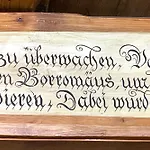 zu überwachen,
en Borromäus, um
ieren, Dabei wurd